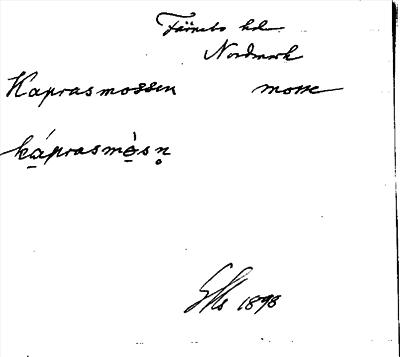 Färnebo hd
Nordmark
Kaprasmossen mosse
ká̱prasmò̱sn̥
1898